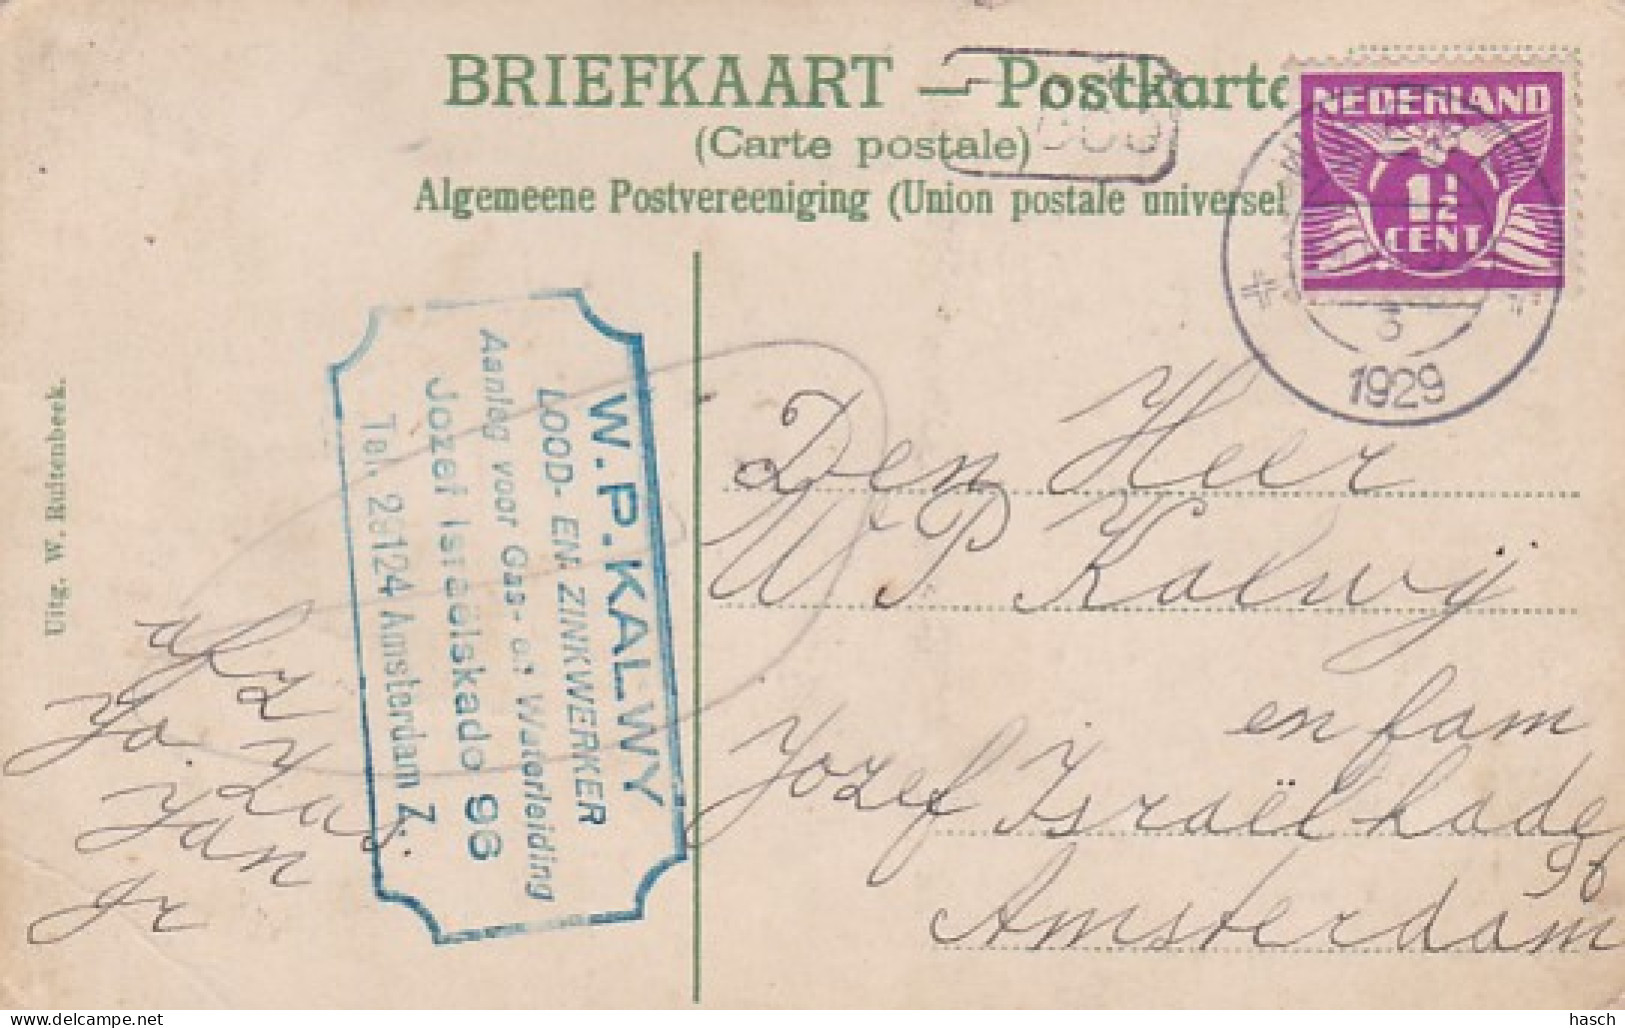 BRIEFKAART — Postkarte
(Carte postale)
Algemeene Postvereeniging (Union postale universel
NEDERLAND
1½
CENT
3
1929
Uitg. W. Rutenbeek.
W. P. KALWY
LOOD- EN ZINKWERKER
Aanleg voor Gas- en Waterleiding
Jozef Israëlskade 96
Tel. 28124 Amsterdam Z.
Den Heer
W P Kalwy
en fam
Jozef Israëlkade
96
Amsterdam
afz
Jan
jr
hasch
delcampe.net